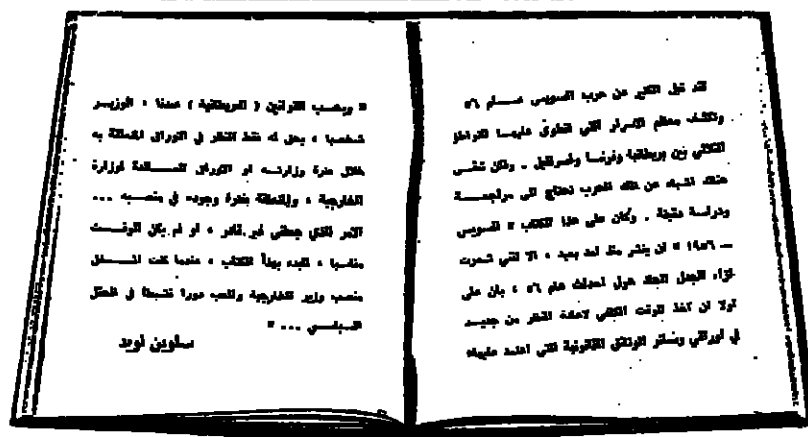 لقد قيل الكثير عن حرب السويس عــام ٥٦
وتكشفت معظم الاسرار التي انطوى عليها التواطؤ
الثلاثي بين بريطانية وفرنسا واسرائيل . ولكن تبقى
هناك اشياء عن تلك الحرب تحتاج الى مراجعــة
ودراسة دقيقة . وكان على هذا الكتاب « السويس
— ١٩٥٦ » ان ينشر منذ امد بعيد ، الا انني شعرت
ازاء الجدل الحاد حول احداث عام ٥٦ ، بان على
اولا ان آخذ الوقت الكافي لاعادة النظر من جديــد
في اوراقي وسائر الوثائق القانونية التي اعتمد عليها،
« وبحسب القوانين ( البريطانية ) عندنا ، الوزيــر
شخصيا ، يحق له فقط النظر في الاوراق المتعلقة به
خلال فترة وزارتــه او الاوراق العــائدة لوزارة
الخارجية ، والمتعلقة بفترة وجوده في منصبه ...
الامر الذي جعلني غير قادر ، او لم يكن الوقــت
مناسبا ، للبدء بهذا الكتاب ، عندما كنت اشــغل
منصب وزير الخارجية والعب دورا نشيطا في الحقل
السياســي ... »
سلوين لويد